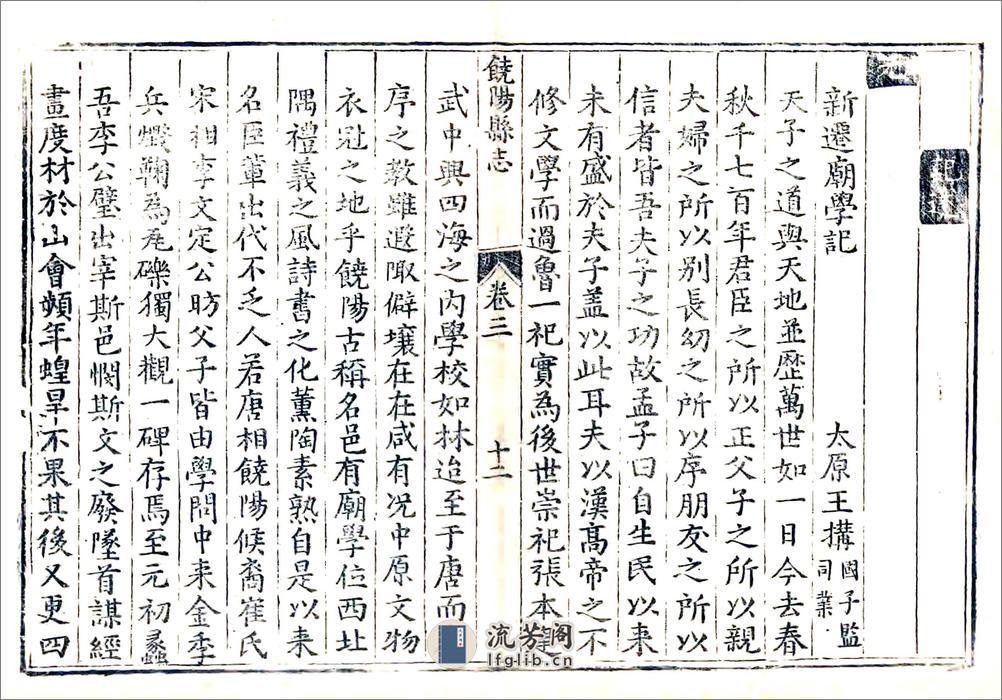 新遷廟學記 太原王搆國子監司業
天子之道與天地並歷萬世如一日今去春
秋千七百年君臣之所以正父子之所以親
夫婦之所以别長幼之所以序朋友之所以
信者皆吾夫子之功故孟子曰自生民以来
未有盛於夫子盖以此耳夫以漢高帝之不
修文學而過魯一祀實為後世崇祀張本
饒陽縣志 卷三 十二
武中興四海之内學校如林迨至于唐而
序之教雖遐陬僻壤在在咸有况中原文物
衣冠之地乎饒陽古稱名邑有廟學位西址
隅禮義之風詩書之化薰陶素熟自是以来
名臣輩出代不乏人若唐相饒陽候裔崔氏
宋相李文定公昉父子皆由學問中来金季
兵燬鞠為㞐礫獨大觀一碑存焉至元初蠡
吾李公璧出宰斯邑憫斯文之廢墜首謀經
畫度材於山會頻年蝗旱不果其後又更四
流芳阁
lfglib.cn